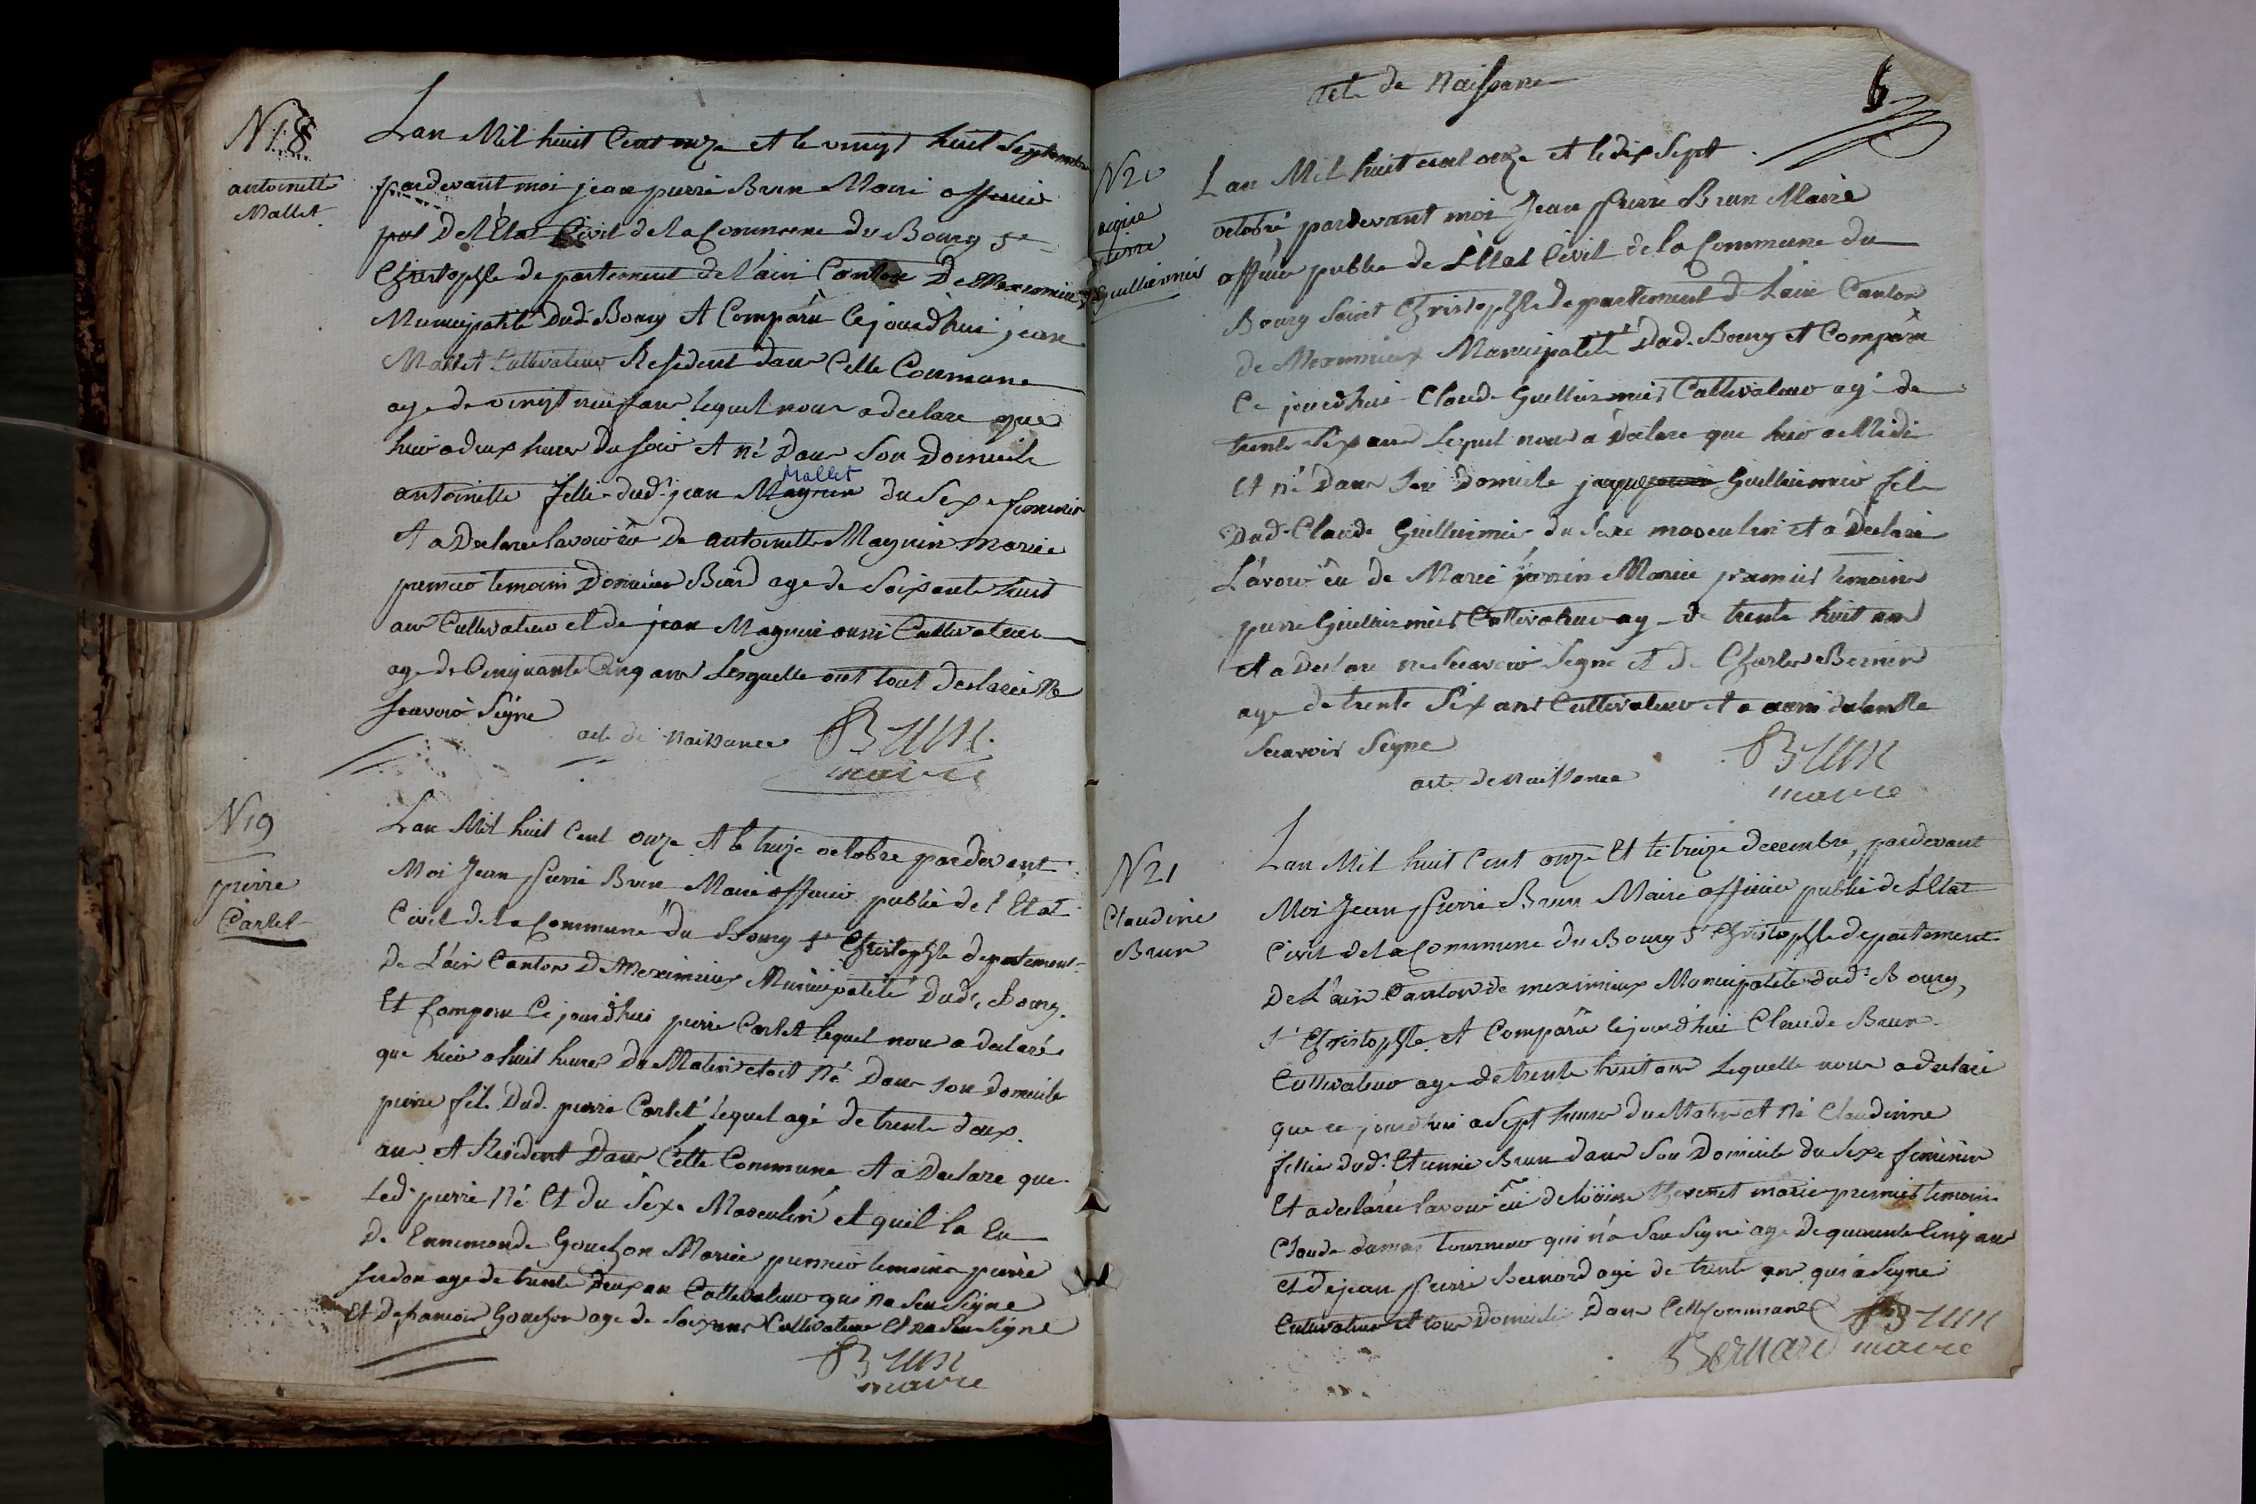 N 18
antoinette
Mallet
Lan Mil huit Cent onze et le vingt huit Septembre
pardevant moi jean pierre Brun Maire officier
pul De l'État Civil de la Commune du Bourg St
Christophle departement de l'ain Canton De Meximieux
Municipalité Dud. Bourg et Comparu Cejourd'hui jean
Mallet Cultivateur Résident dans Cette Commune
age de vingt neuf ans lequel nous a declare que
hier a deux heures du soir et né Dans Son Domicile
Mallet
antoinette fille dud. jean Magnin du Sexe feminin
et a Declaré lavoir eu de antoinette Magnin mariée
premier temoin Dominier Biard age de Soixante huit
ans Cultivateur et de jean Magnin aussi Cultivateur
age de Cinquante Cinq ans Lesquelle ont tout declaréé Ne
Scavoir Signe
acte de naissance
Brun
maire
N 19
pierre
Carlet
Lan Mil huit Cent onze et le treize octobre pardevant
Moi Jean pierre Brun Maire officier public de l'État
Civil de la Commune du Bourg St Christophle departement
De L'ain Canton De Meximieux Municipalité Dud. Bourg
Et Comparu Ce jourd'hui pierre Carlet lequel nous a declaré
que hier a huit heures Du Matin etoit Né Dans son domicile
pierre fils Dud. pierre Carlet lequel agé de trente deux
ans et Résident Dans Cette Commune et a Declare que
Led. pierre Né Et du Sexe Masculin et quil la Eu
De Ennemonde Gouchon Mariée premier temoins pierre
age de trente Deux an Cultivateur qui na Seu Signe
Et De francois Gouchon age de Cultivateur Et na Seu Signe
Brun
maire
6
acte de Naissance
N 20
Guillermier
Lan Mil huit cent onze et le dix Sept
octobre pardevant moi Jean pierre Brun Maire
officier public de L'État Civil de la Commune du
Bourg Saint Christophle departement de Lain Canton
de Meximieux Municipalité Dud. Bourg et Comparu
Ce jourdhui Claude Guillermier Cultivateur agé de
trente Six ans Lequel nous a Déclare que hier a Midi
Et né Dans Son Domicile jaque Guillermier fils
Dud. Claude Guillermier du Sexe masculin et a Declaré
L'avoir eu de Marie Mariée premier temoins
pierre Guillermier Cultivateur agé de trente huit ans
et a Declare ne Scavoir Signe et de Charles Bernin
age de trente Six ans Cultivateur et a aussi declare Ne
Scavoir Signe
acte de naissance
Brun
maire
N 21
Claudine
Brun
Lan Mil huit Cent onze Et le treize decembre, pardevant
Moi Jean pierre Brun Maire officier public de L'État
Civil de la Commune du Bourg St Christophle departement
De L'ain Canton de meximieux Municipalité dud. Bourg,
St Christophle et Comparu cejourdhui Claude Brun
Cultivateur age de trente huit ans Lequelle nous a declaré
que ce jourdhui a Sept heures du Matin et Né Claudinne
fillie dud. Etienne Brun dans Son Domicile du Sexe feminin
Et a declaré lavoir eu de Thevenet mariée premier temoin
Claude dumas tourneur qui n'a Seu Signé age De quarante Cinq ans
et de jean pierre Bernard agé de trente ans qui a Signé
Cultivateur et tous Domicilié Dans Cette Commune
Brun
Bernard maire